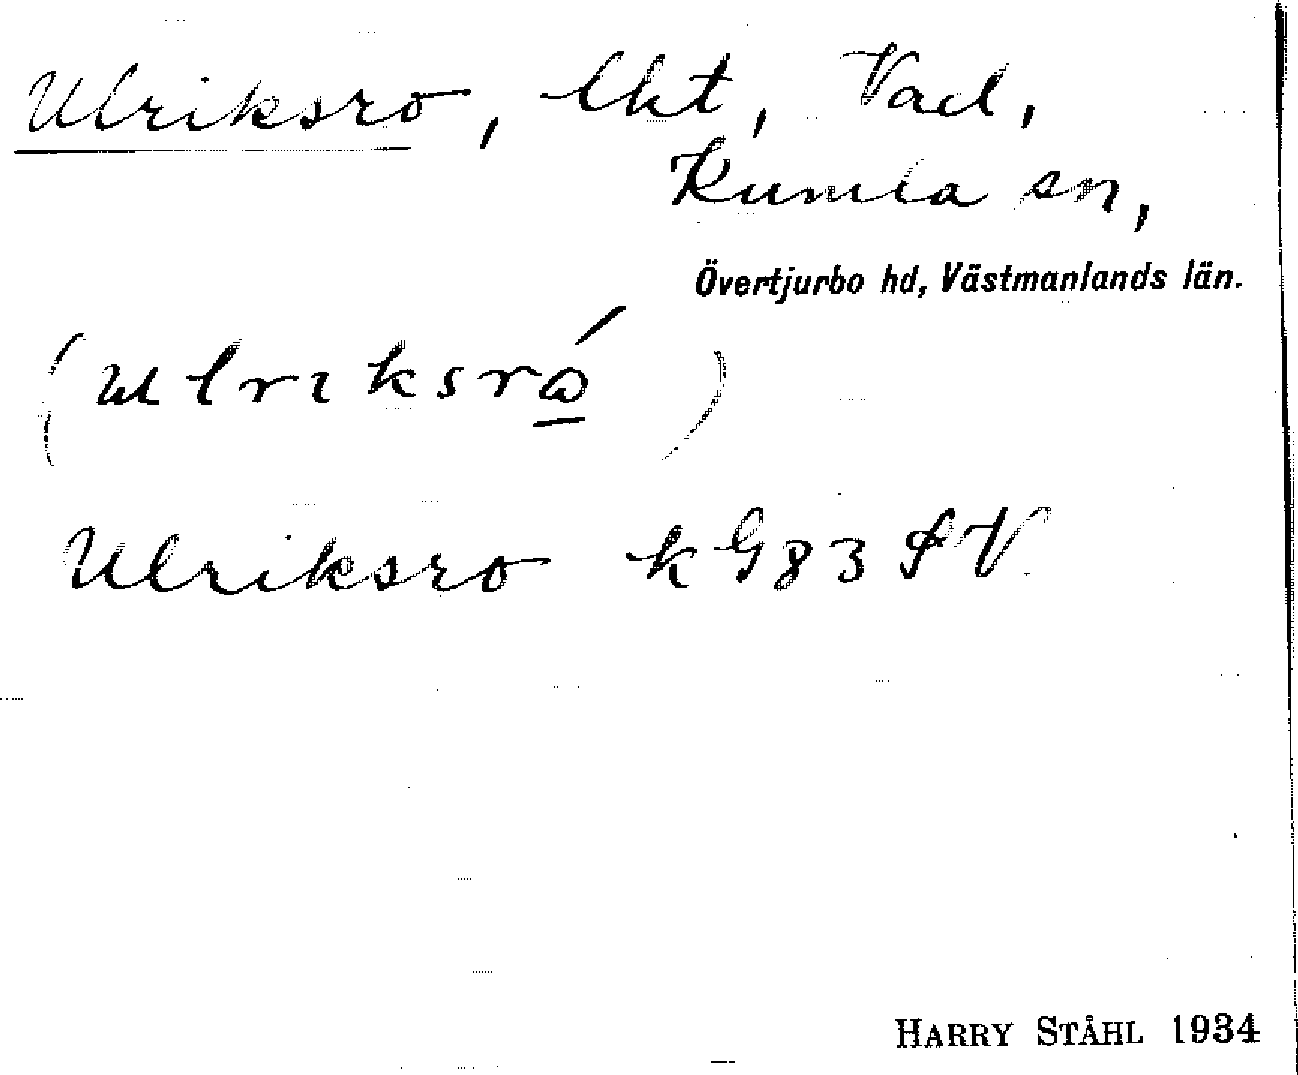 Ulriksro, lht, Vad,
Kumla sn,
Övertjurbo hd, Västmanlands län.
(ulriksró̲)
Ulriksro k G83 SV
HARRY STÅHL 1934